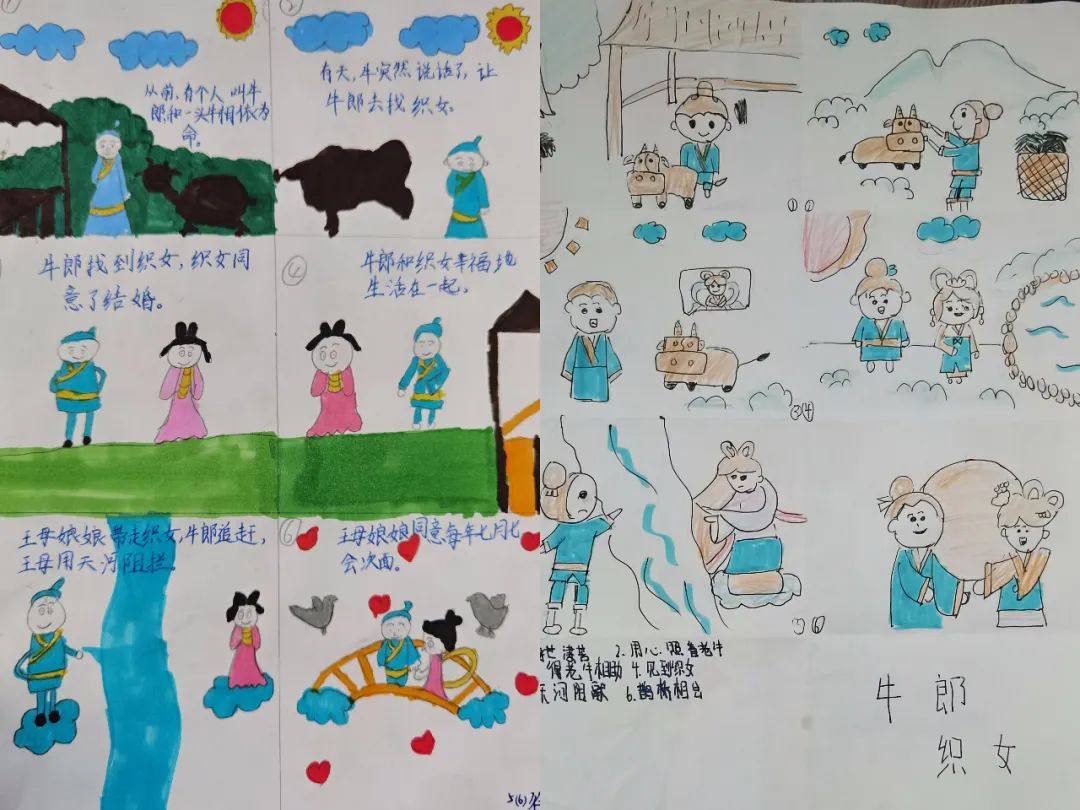 从前,有个人叫牛
郎和一头牛相依为
命。
2
有天,牛突然说话了,让
牛郎去找织女。
牛郎找到织女,织女同
意了结婚。
④
牛郎和织女幸福地
生活在一起。
王母娘娘带走织女,牛郎追赶,
王母用天河阻拦。
⑥
王母娘娘同意每年七月七
会次面。
5(6)
①
③④
⑥
世凄苦 2.用心照看老牛
得老牛相助 4.见到织女
天河阻隔 6.鹊桥相会
牛郎
织女